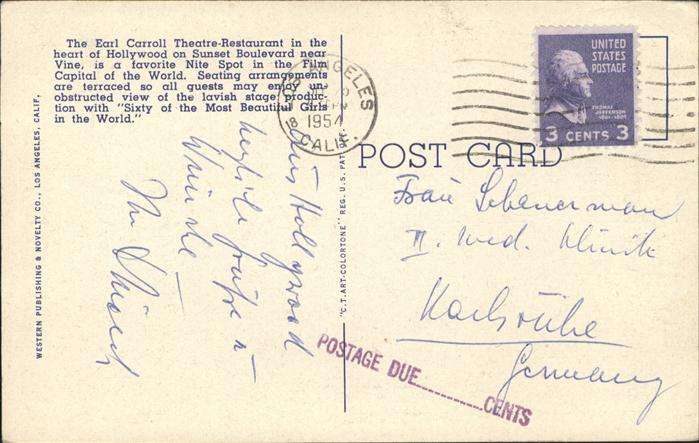 The Earl Carroll Theatre-Restaurant in the
heart of Hollywood on Sunset Boulevard near
Vine, is a favorite Nite Spot in the Film
Capital of the World. Seating arrangements
are terraced so all guests may enjoy un-
obstructed view of the lavish stage produc-
tion with "Sixty of the Most Beautiful Girls
in the World."
WESTERN PUBLISHING & NOVELTY CO., LOS ANGELES, CALIF.
"C.T. ART-COLORTONE" REG. U.S. PAT. OFF.
ANGELES
1954
CALIF.
UNITED
STATES
POSTAGE
THOMAS
JEFFERSON
3 CENTS 3
POST CARD
Aus Hollywood
herzliche Grüße u.
Wünsche
Frau
II. Med. Klinik
Karlsruhe
Germany
POSTAGE DUE............CENTS